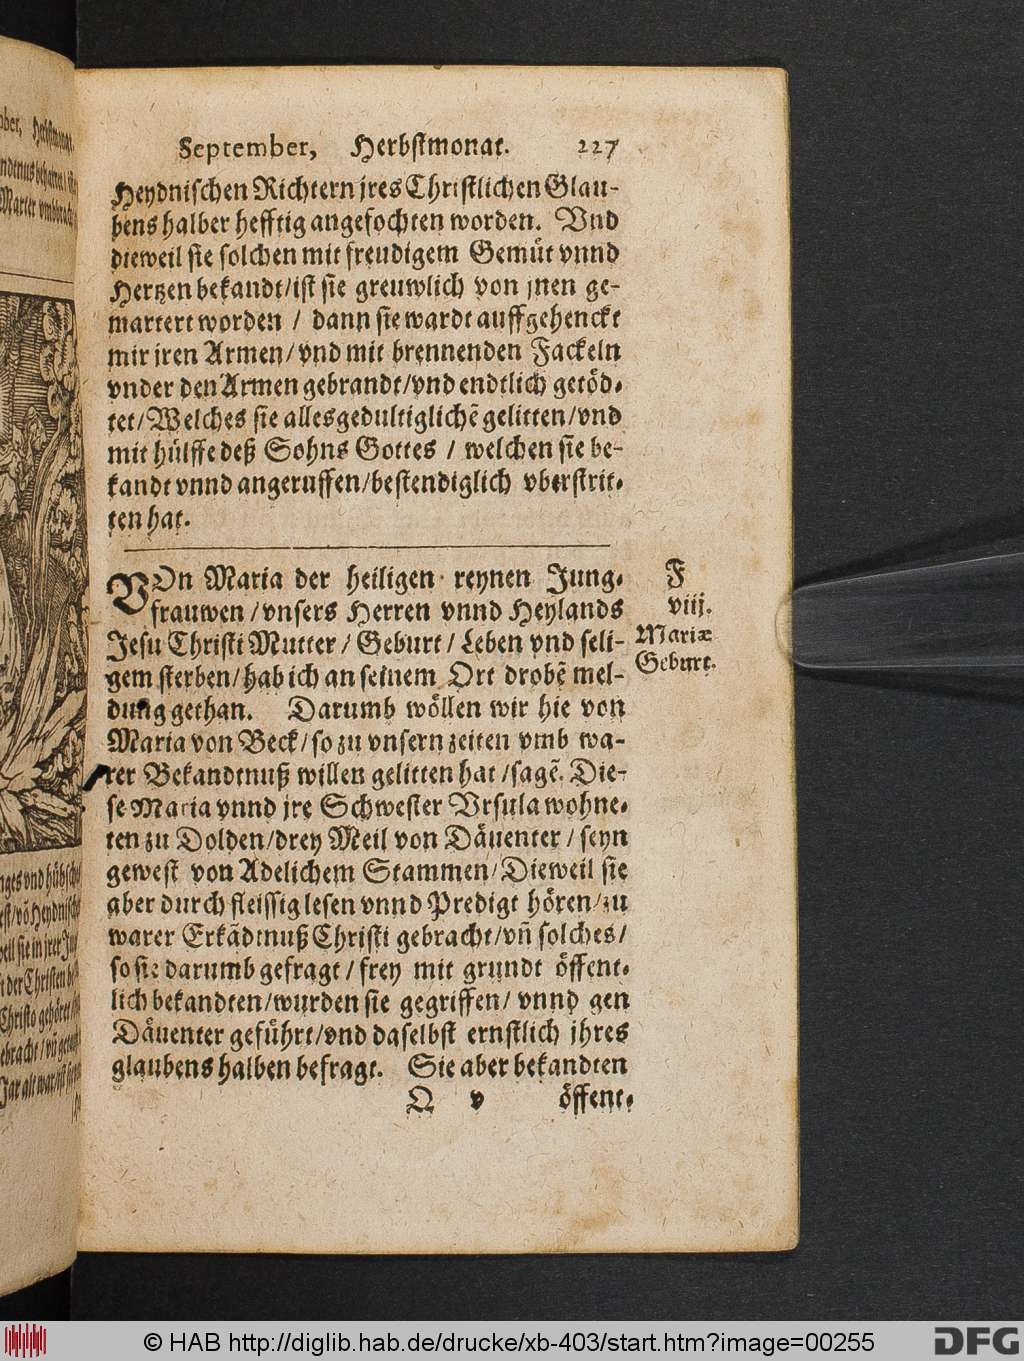 September, Herbstmonat. 227
Heydnischen Richtern jres Christlichen Glau-
bens halber hefftig angefochten worden. Vnd
dieweil sie solchen mit freudigem Gemüt vnnd
Hertzen bekandt/ist sie greuwlich von jnen ge-
martert worden / dann sie wardt auffgehenckt
mir jren Armen/vnd mit brennenden Fackeln
vnder den Armen gebrandt/vnd endtlich getöd-
tet/Welches sie alles gedultiglichẽ gelitten/vnd
mit hülffe deß Sohns Gottes / welchen sie be-
kandt vnnd angeruffen/bestendiglich vberstrit-
ten hat.
VOn Maria der heiligen reynen Jung-
frauwen/vnsers Herren vnnd Heylands
Jesu Christi Mutter/Geburt/Leben vnd seli-
gem sterben/hab ich an seinem Ort drobẽ mel-
dung gethan. Darumb wöllen wir hie von
Maria von Beck/so zu vnsern zeiten vmb wa-
rer Bekandtnuß willen gelitten hat/sagẽ. Die-
se Maria vnnd jre Schwester Vrsula wohne-
ten zu Dolden/drey Meil von Däuenter/seyn
gewest von Adelichem Stammen/Dieweil sie
aber durch fleissig lesen vnnd Predigt hören/zu
warer Erkãdtnuß Christi gebracht/vñ solches/
so sie darumb gefragt/frey mit grundt öffent-
lich bekandten/wurden sie gegriffen/vnnd gen
Däuenter geführt/vnd daselbst ernstlich jhres
glaubens halben befragt. Sie aber bekandten
Q v öffent-
F
viij.
Mariæ
Geburt.
© HAB http://diglib.hab.de/drucke/xb-403/start.htm?image=00255
DFG